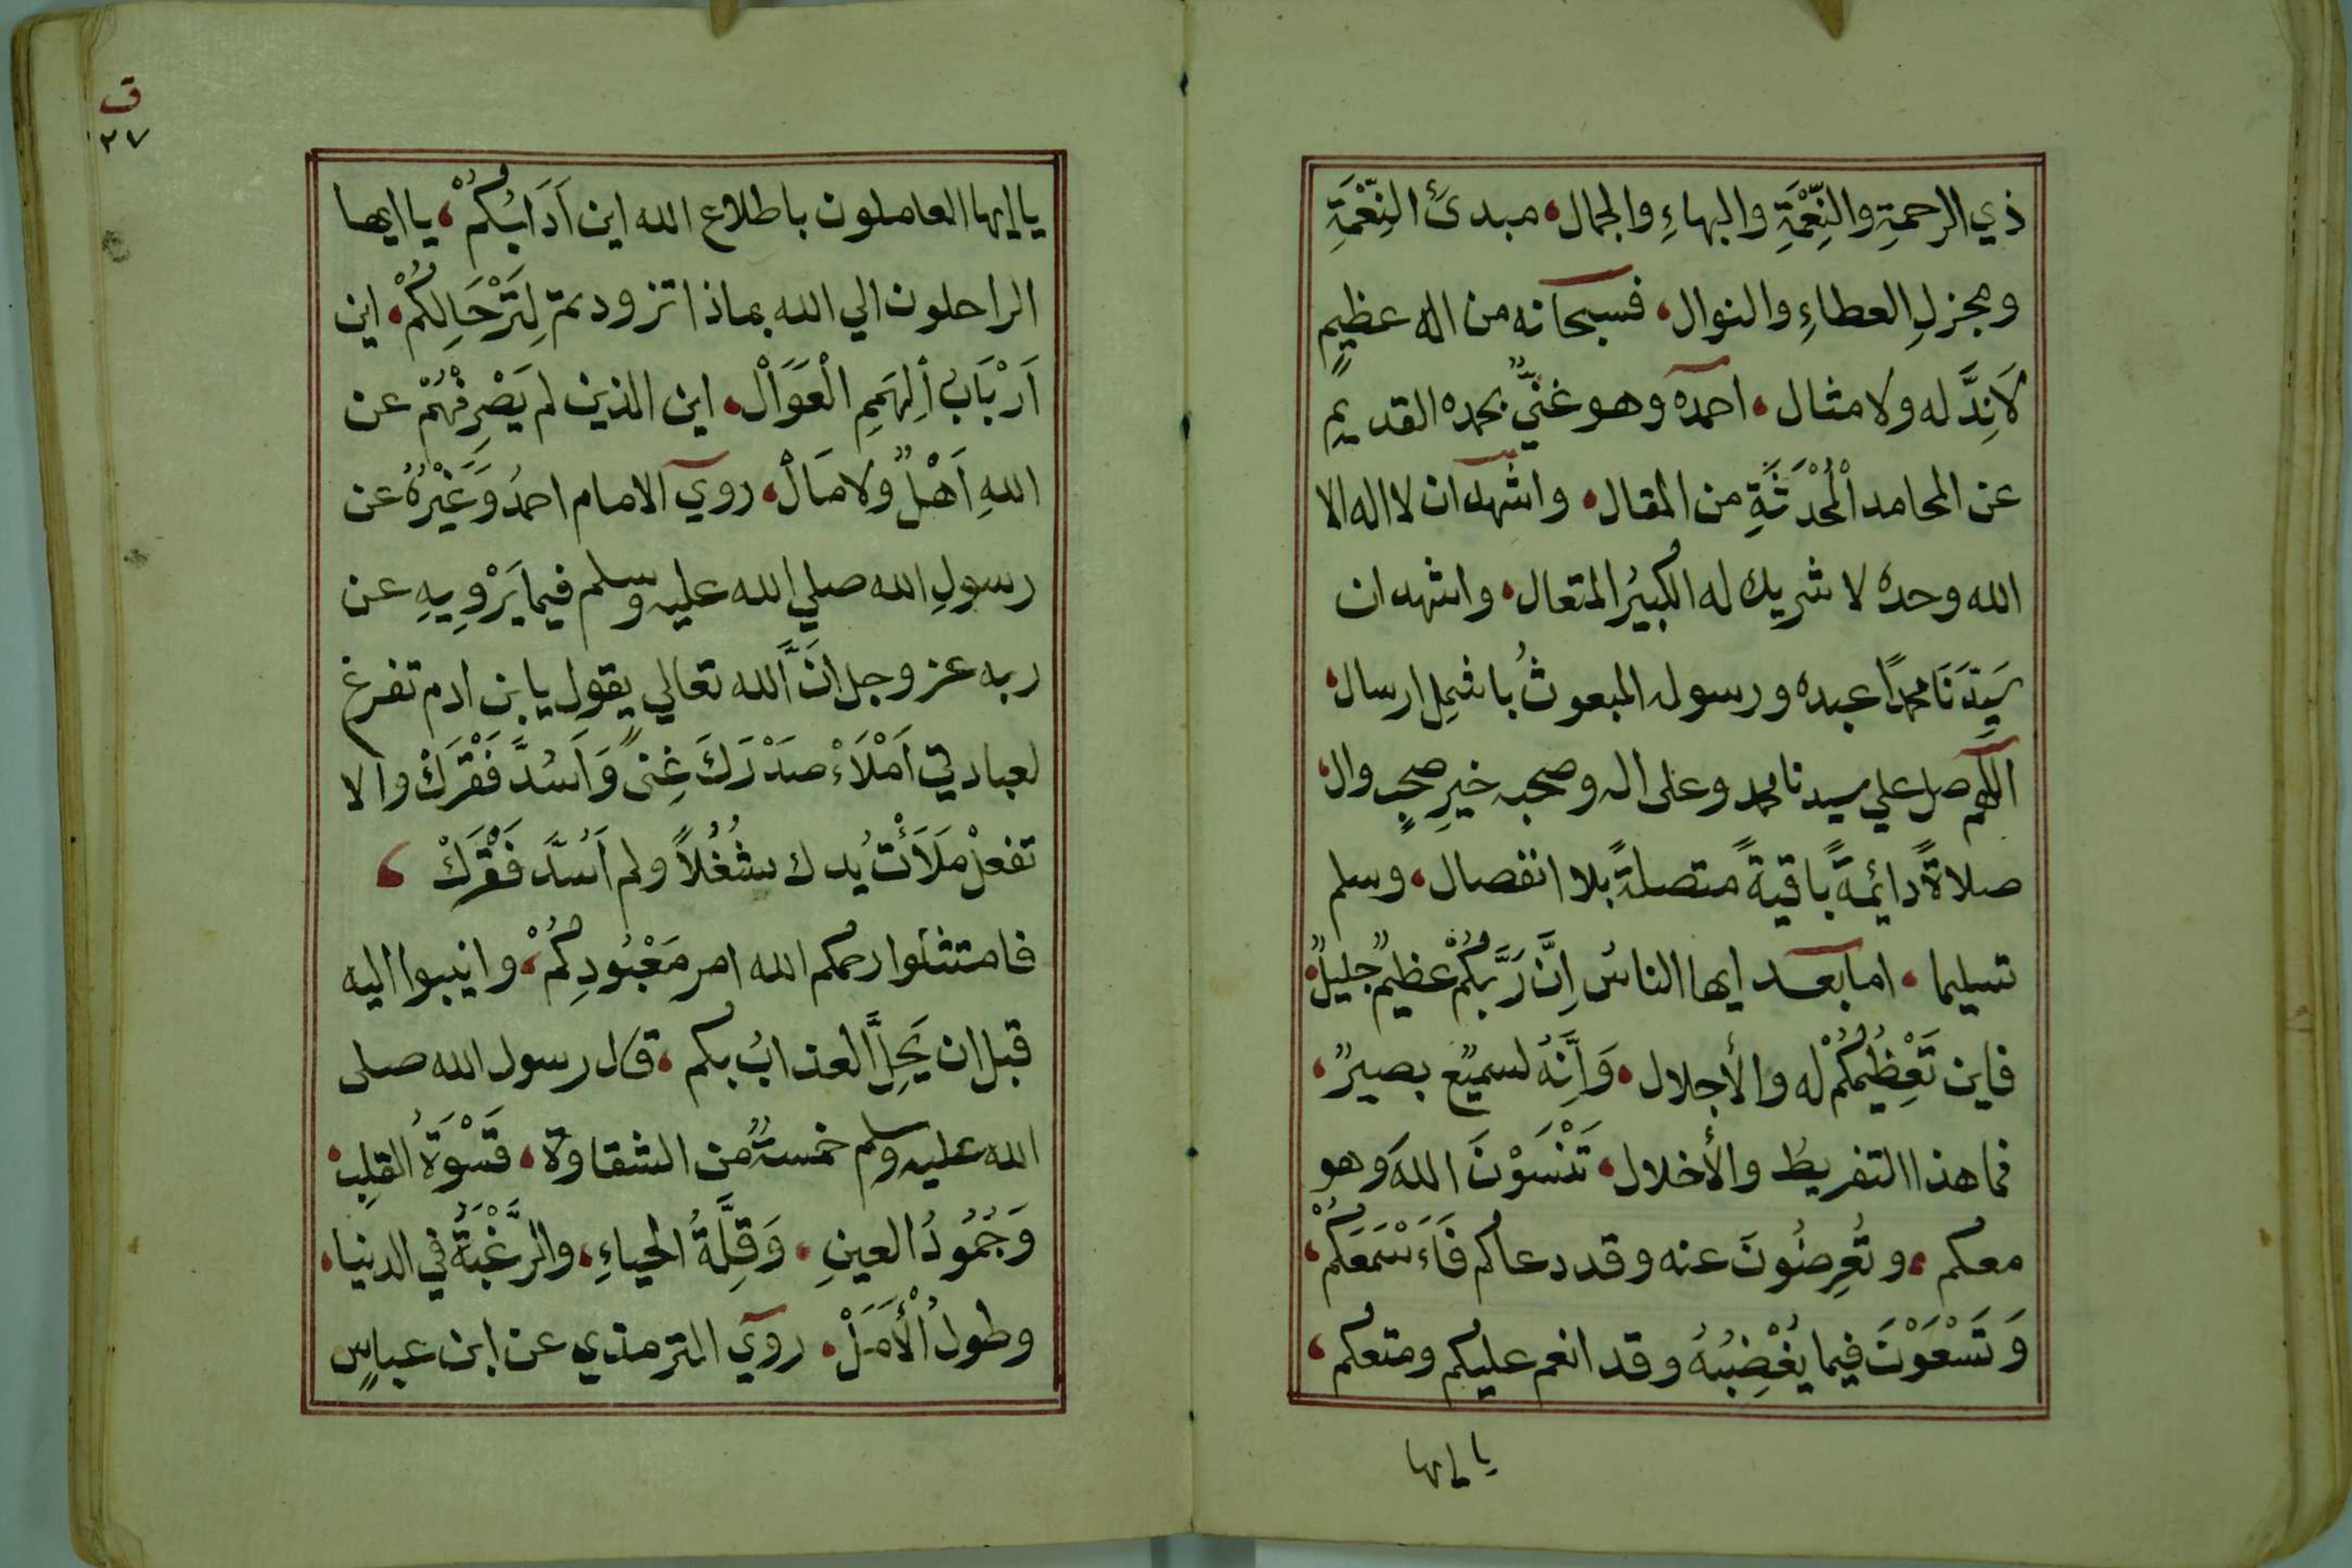 ذي الرحمةِ والنِّعْمَةِ والبهاءِ والجمال، مبدئُ النِّعْمَةِ
ومجزلِ العطاءِ والنوال، فسبحانه من اله عظيمٍ
لَانِدَّ له ولا مثال، احمده وهو غنيٌّ بحمده القديمِ
عن المحامد الْمُحْدَثَةِ من المقال، واشهد ان لا اله الا
الله وحده لا شريك له الكبيرُ المتعال، واشهد ان
سَيِّدَنَا محمداً عبده ورسوله المبعوثُ باشملِ ارسال،
اللهم صل علي سيدنا محمد وعلى اله وصحبه خيرِ صحبٍ وال،
صلاةً دايمةً باقيةً متصلةً بلا انفصال، وسلم
تسليما، اما بعد ايها الناسُ اِنَّ رَبَّكُمْ عظيمٌ جليلٌ،
فاين تَعْظِيمُكُمْ له والأجلال، وَاِنَّهُ لسميعٌ بصيرٌ،
فما هذا التفريطُ والأخلال، تَنْسَوْنَ اللهَ وهو
معكم، وتُعرِضُونَ عنه وقد دعاكم فَاَسْمَعَكُمْ،
وَتَسْعَوْنَ فيما يُغْضِبُهُ وقد انعم عليكم ومتعكم،
يا ايها
ق
٢٧
يا ايها العاملون باطلاع الله اين اَدَابُكُمْ، يا ايها
الراحلون الي الله بماذا تزودتم لِتَرْحَالِكُمْ، اين
اَرْبَابُ الْهِمَمِ الْعَوَالْ، اين الذين لم يَصْرِفْهُمْ عن
اللهِ اَهْلٌ ولا مَالْ، روي الامام احمدُ وَغَيْرُهُ عن
رسولِ الله صلي الله عليه وسلم فيما يَرْوِيهِ عن
ربه عز وجل انَّ الله تعالي يقول يا بن ادم تفرغ
لعبادتي اَمْلَاءْ صَدْرَكَ غِنىً وَاَسُدَّ فَقْرَكْ والا
تفعلْ مَلَأْتُ يدك شُغُلاً ولم اَسُدَّ فَقْرَكْ،
فامتثلوا رحمكم الله امر مَعْبُودِكُمْ، وانيبوا اليه
قبل ان يَحِلَّ العذابُ بكم، قال رسول الله صلى
الله عليه وسلم خمسةٌ من الشقاوة، قَسْوَةُ القلبِ،
وَجُمُودُ العينِ، وَقِلَّةُ الحياءِ، والرَّغْبَةُ في الدنيا،
وطولُ الْأَمَلْ، روي الترمذي عن ابن عباسٍ